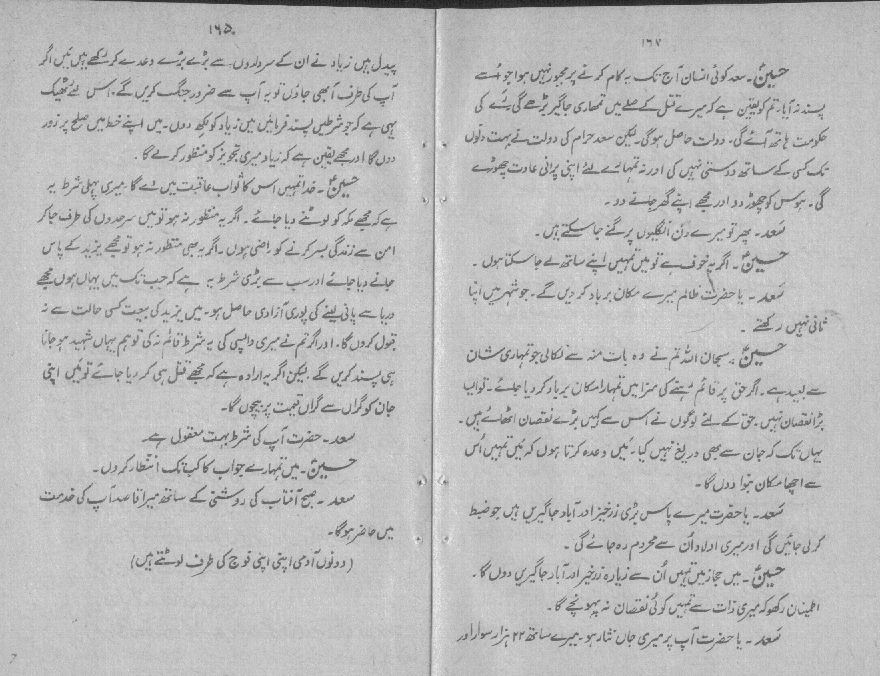 ۱۶۷
حسینؑ۔ سعد کوئی انسان آج تک یہ کام کرنے پر مجبور نہیں ہوا جو اُسے
پسند نہ آیا۔ تم کو یقین ہے کہ میرے قتل کے صلے میں تمھاری جاگیر بڑھے گی رَے کی
حکومت ہاتھ آئے گی۔ دولت حاصل ہوگی۔ لیکن سعد حرام کی دولت نے بہت دنوں
تک کسی کے ساتھ دوستی نہیں کی اور نہ تمہارے لئے اپنی پرانی عادت چھوڑے
گی۔ ہوس کو چھوڑ دو اور مجھے اپنے گھر جانے دو۔
سعد۔ پھر تو میرے دن انگلیوں پر گنے جاسکتے ہیں۔
حسینؑ۔ اگر یہ خوف ہے تو میں تمہیں اپنے ساتھ لے جاسکتا ہوں۔
سعد۔ یا حضرت ظالم میرے مکان برباد کر دیں گے۔ جو شہر میں اپنا
ثانی نہیں رکھتے۔
حسینؑ۔ سبحان اللہ تم نے وہ بات منہ سے نکالی جو تمہاری شان
سے بعید ہے۔ اگر حق پر قائم رہنے کی سزا میں تمہارا مکان برباد کر دیا جائے۔ تو ایسا
بڑا نقصان نہیں۔ حق کے لئے لوگوں نے اس سے کہیں بڑے نقصان اٹھائے ہیں۔
یہاں تک کہ جان سے بھی دریغ نہیں کیا۔ میں وعدہ کرتا ہوں کہ میں تمہیں اُس
سے اچھا مکان بنوا دوں گا۔
سعد۔ یا حضرت میرے پاس بڑی زرخیز اور آباد جاگیریں ہیں جو ضبط
کر لی جائیں گی اور میری اولاد اُن سے محروم رہ جائے گی۔
حسینؑ۔ میں حجاز میں تمہیں اُن سے زیادہ زرخیز اور آباد جاگیریں دوں گا۔
اطمینان رکھو کہ میری ذات سے تمہیں کوئی نقصان نہ پہونچے گا۔
سعد۔ یا حضرت آپ پر میری جاں نثار ہو۔ میرے ساتھ ۲۲ ہزار سوار اور
۱۶۵
پیدل ہیں زیاد نے ان کے سرداروں سے بڑے بڑے وعدے کر رکھے ہیں میں اگر
آپ کی طرف آ بھی جاؤں تو یہ آپ سے ضرور جنگ کریں گے۔ اس لئے ٹھیک
یہی ہے کہ جو شرطیں پسند فرمائیں میں زیاد کو لکھ دوں۔ میں اپنے خط میں صلح پر زور
دوں گا اور مجھے یقین ہے کہ زیاد میری تجویز کو منظور کر لے گا۔
حسینؑ۔ خدا تمہیں اس کا ثواب عاقبت میں دے گا۔ میری پہلی شرط یہ
ہے کہ مجھے مکہ کو لوٹنے دیا جائے۔ اگر یہ منظور نہ ہو تو میں سرحدوں کی طرف جا کر
امن سے زندگی بسر کرنے کو راضی ہوں۔ اگر یہ بھی منظور نہ ہو تو مجھے یزید کے پاس
جانے دیا جائے اور سب سے بڑی شرط یہ ہے کہ جب تک میں یہاں ہوں مجھے
دریا سے پانی لینے کی پوری آزادی حاصل ہو۔ میں یزید کی بیعت کسی حالت سے نہ
قبول کروں گا۔ اور اگر تم نے میری واپسی کی یہ شرط قائم نہ کی تو ہم یہاں شہید ہو جانا
ہی پسند کریں گے۔ لیکن اگر یہ ارادہ ہے کہ مجھے قتل ہی کر دیا جائے تو میں اپنی
جان کو گراں سے گراں قیمت پر بیچوں گا۔
سعد۔ حضرت آپ کی شرط بہت معقول ہے۔
حسینؑ۔ میں تمہارے جواب کا کب تک انتظار کروں۔
سعد۔ صبح آفتاب کی روشنی کے ساتھ میرا قاصد آپ کی خدمت
میں حاضر ہوگا۔
(دونوں آدمی اپنی اپنی فوج کی طرف لوٹتے ہیں)